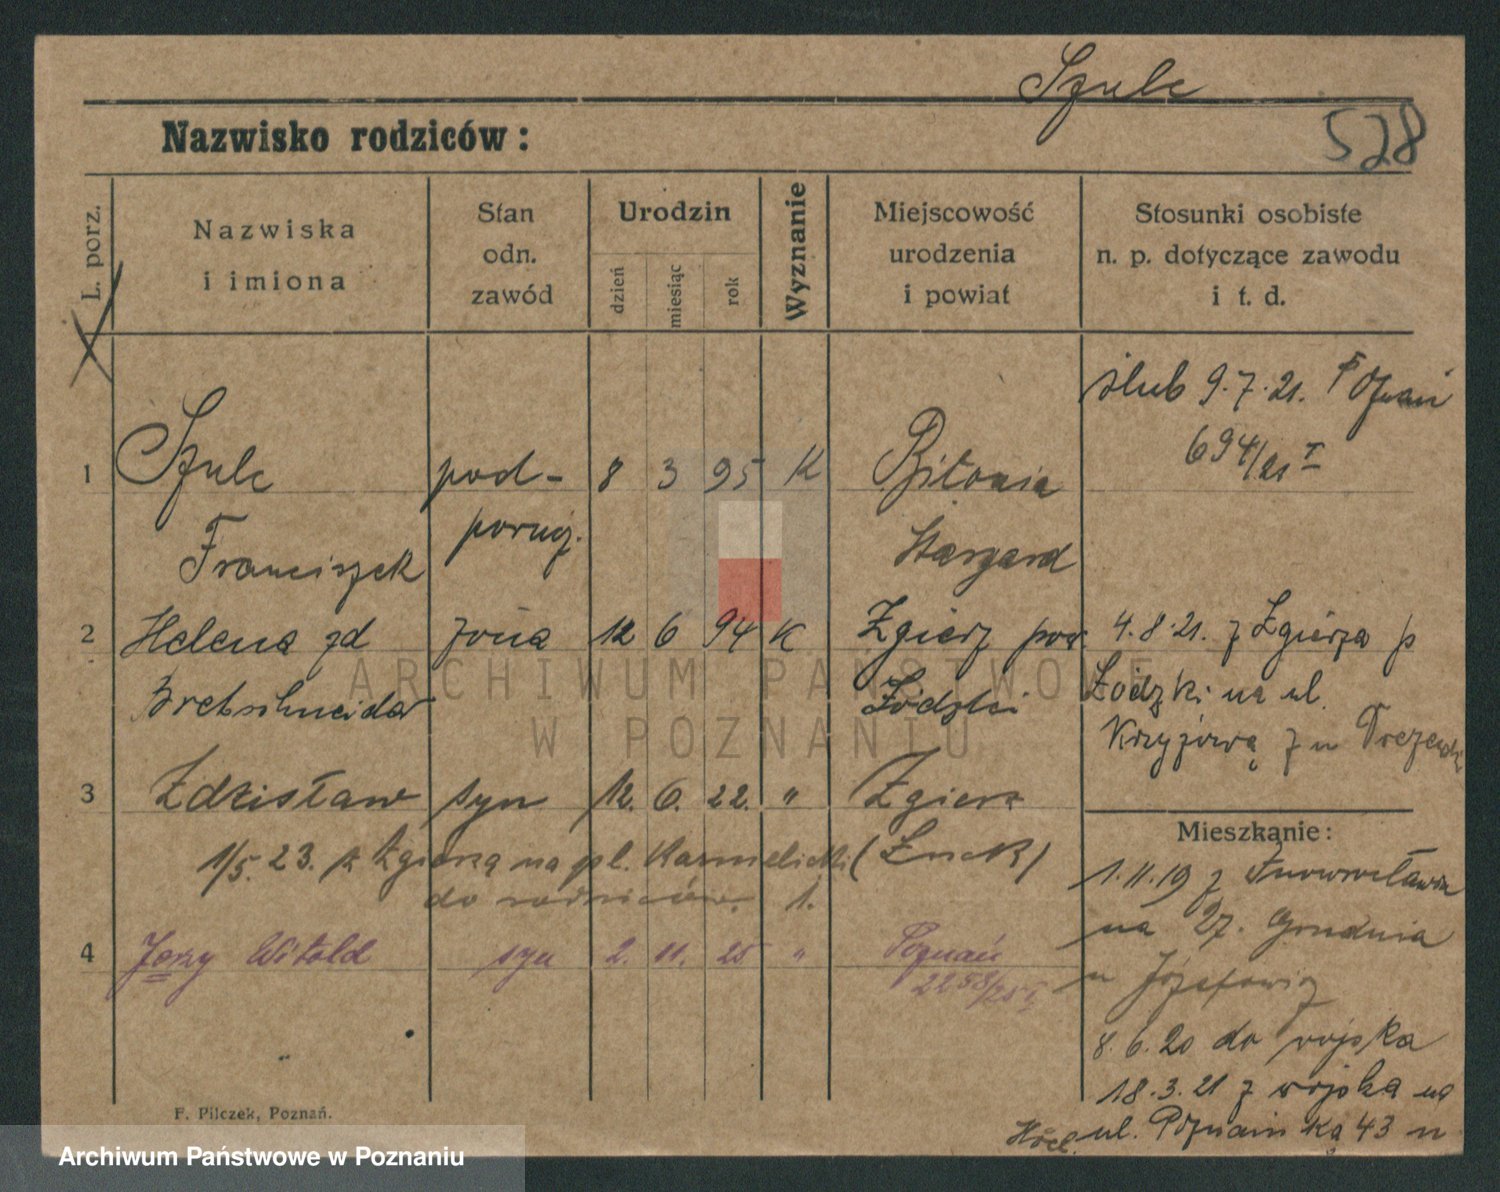 Szulc
528
Nazwisko rodziców:
L. porz.
Nazwiska
i imiona
Stan
odn.
zawód
Urodzin
dzień
miesiąc
rok
Wyznanie
Miejscowość
urodzenia
i powiat
Stosunki osobiste
n. p. dotyczące zawodu
i t. d.
ślub 9.7.21. Poznań
694/21 I
1 Szulc pod- 8 3 95 K Bitonia
Franciszek porucz. Stargard
2 Helena zd żona 12 6 94 K Zgierz pow.
Bretschneider Łódzki
4.8.21. z Zgierza p
Łódzki na ul.
Krzyżową 7 u
3 Zdzisław syn 12. 6. 22. " Zgierz
1/5.23. z Zgierza na pl. Karmelicki (Łuck)
do rodziców. 1.
4 Jerzy Witold syn 2. 11. 25 " Poznań
2258/25 I
Mieszkanie:
1.11.19 z Inowrocławia
na 27. Grudnia
u Józefowicz
8.6.20 do wojska
18.3.21 z wojska na
ul. Poznańską 43 u
F. Pilczek, Poznań.
ARCHIWUM PAŃSTWOWE
W POZNANIU
Archiwum Państwowe w Poznaniu